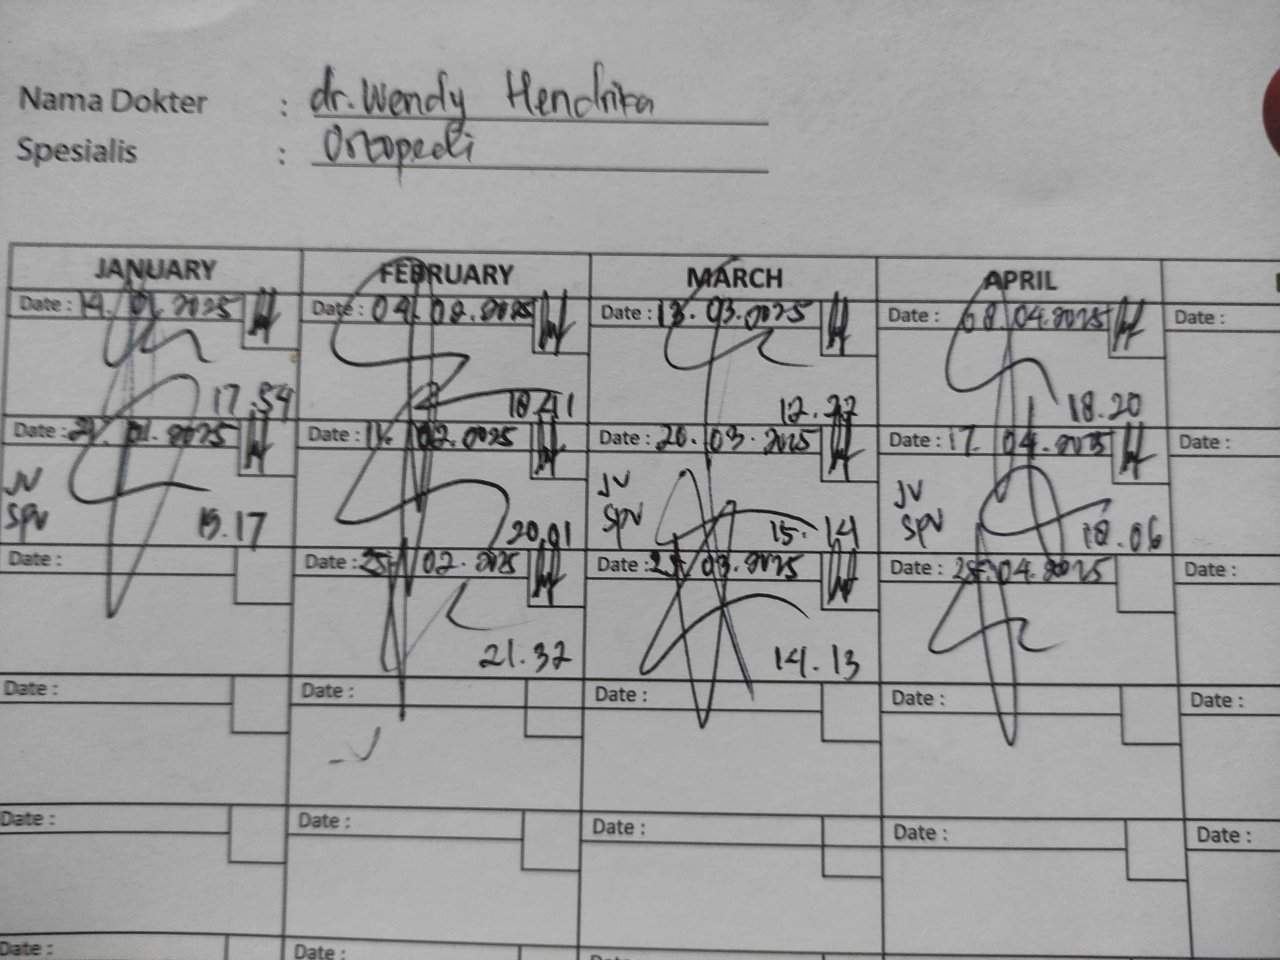 Nama Dokter : dr. Wendy Hendrika
Spesialis : Ortopedi
JANUARY FEBRUARY MARCH APRIL
Date : 14. 01. 2025 Date : 04. 02. 2025 Date : 13. 03. 2025 Date : 08. 04. 2025 Date :
17.54 18.41 12.27 18.20
Date : 01. 2025 Date : 02. 2025 Date : 20. 03. 2025 Date : 17. 04. 2025 Date :
JV JV JV
SPV 15.17 20.01 SPV 15.14 SPV 18.06
Date : Date : 25. 02. 2025 Date : 25. 03. 2025 Date : 25. 04. 2025 Date :
21.32 14.13
Date : Date : Date : Date : Date :
Date : Date : Date : Date : Date :
Date : Date : Date :